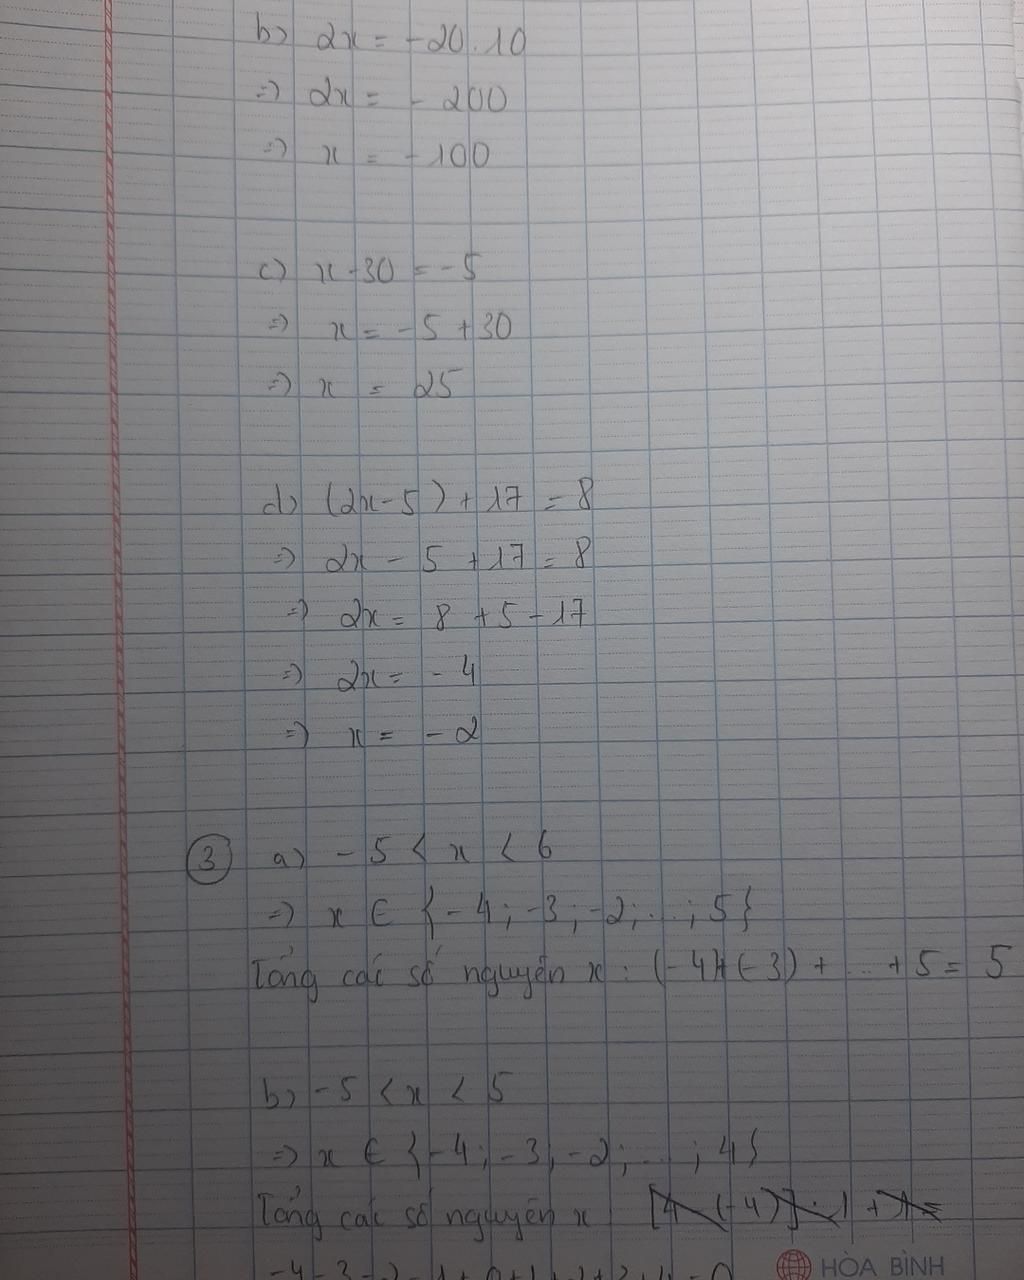 b) 2x = -20.10
=> 2x = - 200
=> x = -100
c) x-30 = -5
=> x = -5 + 30
=> x = 25
d) (2x-5) + 17 = 8
=> 2x - 5 + 17 = 8
=> 2x = 8 + 5 - 17
=> 2x = - 4
=> x = - 2
3 a) - 5 < x < 6
=> x ∈ {-4; -3; -2; ...; 5}
Tổng các số nguyên x : (-4)+(-3) + ... + 5 = 5
b) -5 < x < 5
=> x ∈ {-4; -3; -2; ...; 4}
Tổng các số nguyên x
-4-3-2-1+0+1+2+3+4=0
HÒA BÌNH